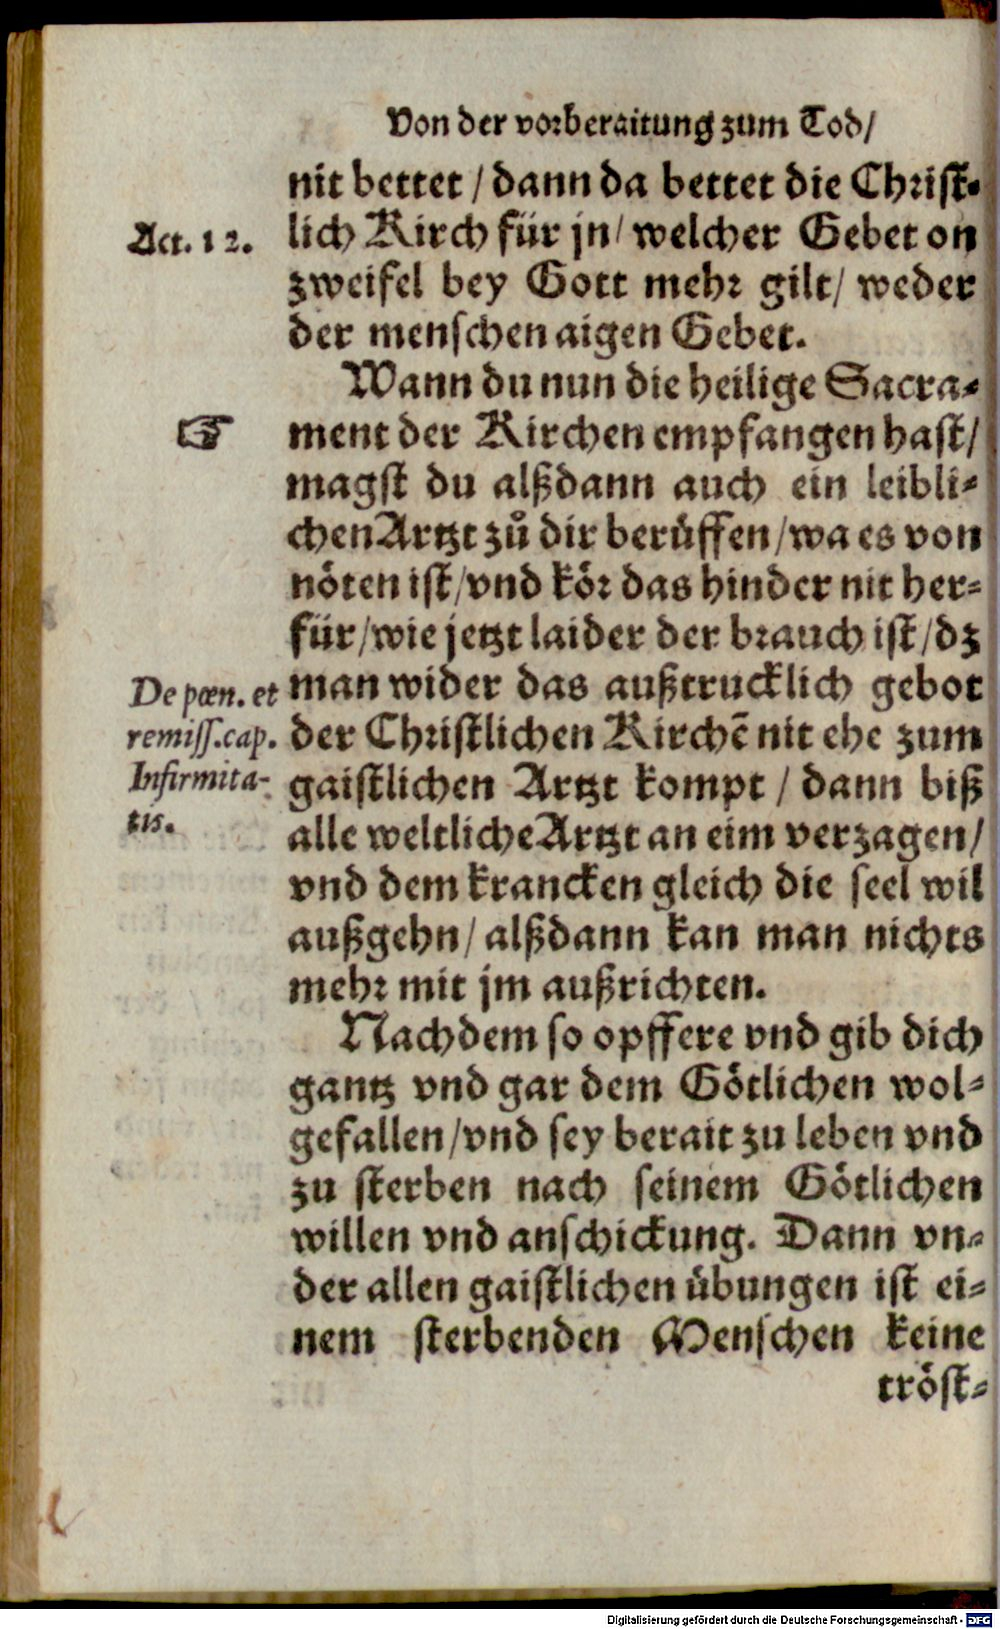 Von der vorberaitung zum Tod/
nit bettet / dann da bettet die Christ-
Act. 12. lich Kirch für jn/ welcher Gebet on
zweifel bey Gott mehr gilt/ weder
der menschen aigen Gebet.
Wann du nun die heilige Sacra-
☞ ment der Kirchen empfangen hast/
magst du alßdann auch ein leibli-
chen Artzt zů dir berůffen/wa es von
nöten ist/vnd kör das hinder nit her-
für/wie jetzt laider der brauch ist/dz
De pœn. et man wider das außtrucklich gebot
remiss.cap. der Christlichen Kirchẽ nit ehe zum
Infirmita- gaistlichen Artzt kompt / dann biß
tis. alle weltliche Artzt an eim verzagen/
vnd dem krancken gleich die seel wil
außgehn/ alßdann kan man nichts
mehr mit jm außrichten.
Nachdem so opffere vnd gib dich
gantz vnd gar dem Götlichen wol-
gefallen/vnd sey berait zu leben vnd
zu sterben nach seinem Götlichen
willen vnd anschickung. Dann vn-
der allen gaistlichen übungen ist ei-
nem sterbenden Menschen keine
tröst-
Digitalisierung gefördert durch die Deutsche Forschungsgemeinschaft - DFG